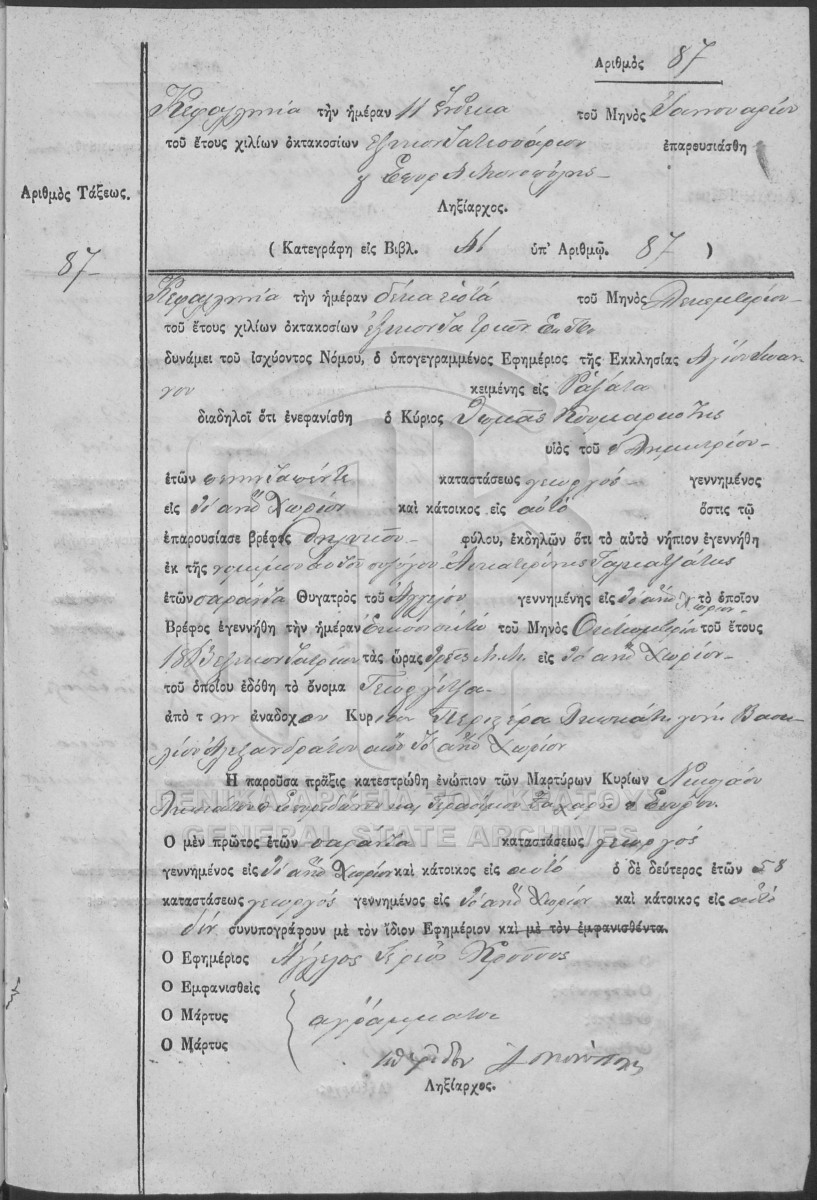 Ἀριθμὸς 87
Κεφαλληνία τὴν ἡμέραν 11 ἕνδεκα τοῦ Μηνὸς Ἰαννουαρίου
τοῦ ἔτους χιλίων ὀκτακοσίων ἑξηκοντατεσσάρων ἐπαρουσιάσθη
Ἀριθμὸς Τάξεως.
Ληξίαρχος.
( Κατεγράφη εἰς Βιβλ. ὑπ' Ἀριθμῷ. 87 )
87
Κεφαλληνία τὴν ἡμέραν δέκα ἑπτά τοῦ Μηνὸς Δεκεμβρίου
τοῦ ἔτους χιλίων ὀκτακοσίων ἑξήκοντα τριῶν
δυνάμει τοῦ ἰσχύοντος Νόμου, ὁ ὑπογεγραμμένος Ἐφημέριος τῆς Ἐκκλησίας Ἁγίου Ἰωάν-
νου κειμένης εἰς Ραζάτα
διαδηλοῖ ὅτι ἐνεφανίσθη ὁ Κύριος Θωμᾶς
υἱὸς τοῦ Δημητρίου
ἐτῶν πενηνταπέντε καταστάσεως γεωργός γεννημένος
εἰς τό ἄνω Χωρίον καὶ κάτοικος εἰς αὐτό ὅστις τῷ
ἐπαρουσίασε βρέφος θηλυκοῦ φύλου, ἐκδηλῶν ὅτι τὸ αὐτὸ νήπιον ἐγεννήθη
ἐκ τῆς νομίμου αὐτοῦ συζύγου Αἰκατερίνης
ἐτῶν σαράντα Θυγατρὸς τοῦ Ἀγγέλου γεννημένης εἰς τό ἄνω Χωρίον τὸ ὁποῖον
Βρέφος ἐγεννήθη τὴν ἡμέραν τοῦ Μηνὸς Ὀκτωμβρίου τοῦ ἔτους
τὰς ὥρας τρεῖς Μ.Μ. εἰς τό ἄνω Χωρίον
τοῦ ὁποίου ἐδόθη τὸ ὄνομα Γεωργίτζα
ἀπὸ τ ην ἀναδοχον Κυρίαν γυνή Βασι-
λίου Ἀλεξανδράτου ἀπό τό ἄνω Χωρίον
Ἡ παροῦσα πρᾶξις κατεστρώθη ἐνώπιον τῶν Μαρτύρων Κυρίων Νικολάου
ΓΕΝΙΚΑ ΑΡΧΕΙΑ ΤΟΥ ΚΡΑΤΟΥΣ
GENERAL STATE ARCHIVES
Ὁ μὲν πρῶτος ἐτῶν σαράντα καταστάσεως γεωργός
γεννημένος εἰς τό ἄνω Χωρίον καὶ κάτοικος εἰς αὐτό ὁ δὲ δεύτερος ἐτῶν 58
καταστάσεως γεωργός γεννημένος εἰς τό ἄνω Χωρίον καὶ κάτοικος εἰς αὐτό
δέν συνυπογράφουν μὲ τὸν ἴδιον Ἐφημέριον καὶ μὲ τὸν ἐμφανισθέντα.
Ὁ Ἐφημέριος Ἄγγελος Ἱερεύς
Ὁ Ἐμφανισθεὶς
Ὁ Μάρτυς ἀγράμματοι
Ὁ Μάρτυς
Ληξίαρχος.